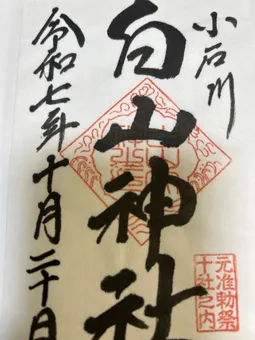 小石川
白山神社
元准勅祭
十社之内
令和七年十月二十日